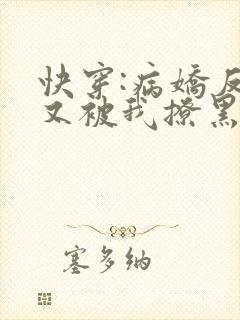 快穿:病嬌反
又被我撩黑
塞多纳